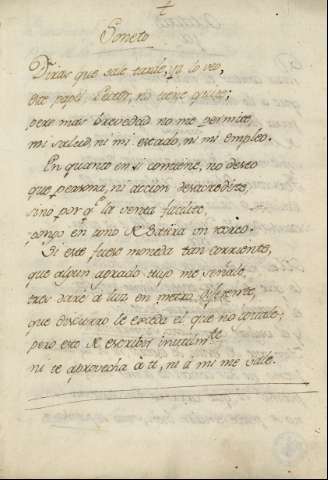 Soneto
Diras que sale tarde, ya lo veo,
este papel Lector, no tiene quite;
pero mas brevedad no me permite,
mi salud, ni mi estado, ni mi empleo.
En quanto en si contiene, no deseo
que persona, ni accion desacredite,
sino por q.e la venta facilite,
pongo en cada
Si este fuese moneda tan corriente,
que algun agrado suyo me señale,
otro daré á luz en metro diferente,
que discurro le exceda el que no iguale;
pero esto de escribir inutilm.te
ni te aprovecha à ti, ni á mi me vale.